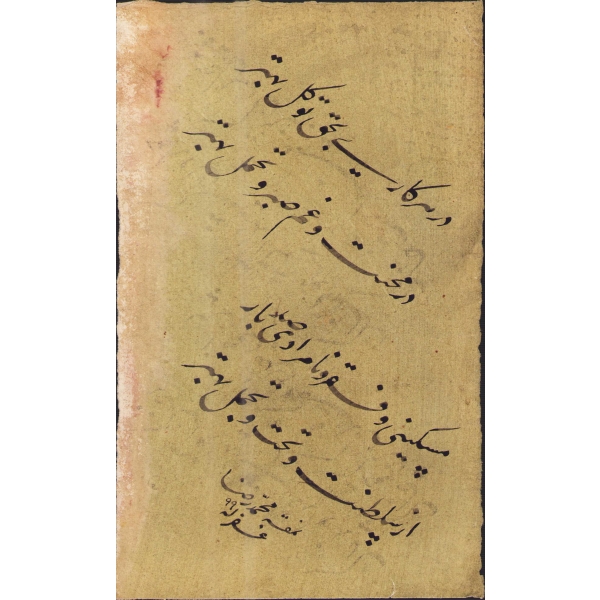 در هر کاریت بحق توکل بهتر
در محنت و غم صبر و تحمل بهتر
مسکینی و فقر و نامرادی صد بار
از سلطنت و تخت و تجمل بهتر
نمقه محمد رضا
غفر له ۹۹